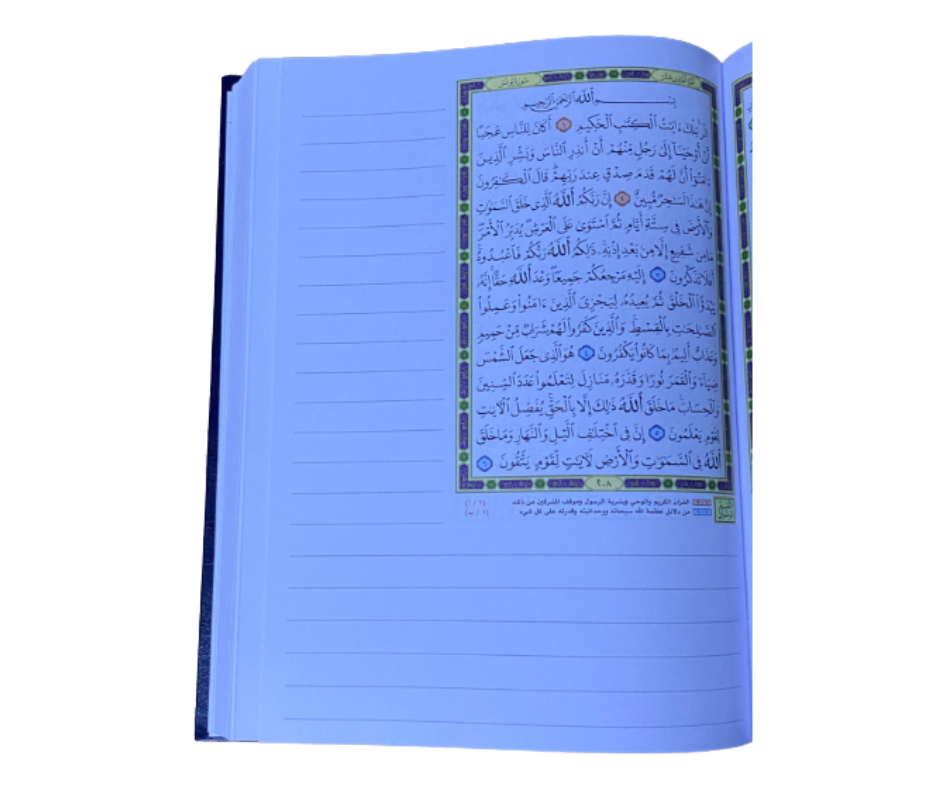 سورة يونس
بِسْمِ ٱللَّهِ ٱلرَّحْمَٰنِ ٱلرَّحِيمِ
الٓر تِلْكَ ءَايَٰتُ ٱلْكِتَٰبِ ٱلْحَكِيمِ ١ أَكَانَ لِلنَّاسِ عَجَبًا
أَنْ أَوْحَيْنَآ إِلَىٰ رَجُلٍ مِّنْهُمْ أَنْ أَنذِرِ ٱلنَّاسَ وَبَشِّرِ ٱلَّذِينَ
ءَامَنُوٓا۟ أَنَّ لَهُمْ قَدَمَ صِدْقٍ عِندَ رَبِّهِمْ قَالَ ٱلْكَٰفِرُونَ
إِنَّ هَٰذَا لَسَٰحِرٌ مُّبِينٌ ٢ إِنَّ رَبَّكُمُ ٱللَّهُ ٱلَّذِى خَلَقَ ٱلسَّمَٰوَٰتِ
وَٱلْأَرْضَ فِى سِتَّةِ أَيَّامٍ ثُمَّ ٱسْتَوَىٰ عَلَى ٱلْعَرْشِ يُدَبِّرُ ٱلْأَمْرَ
مَا مِن شَفِيعٍ إِلَّا مِنۢ بَعْدِ إِذْنِهِۦ ذَٰلِكُمُ ٱللَّهُ رَبُّكُمْ فَٱعْبُدُوهُ
أَفَلَا تَذَكَّرُونَ ٣ إِلَيْهِ مَرْجِعُكُمْ جَمِيعًا وَعْدَ ٱللَّهِ حَقًّا إِنَّهُۥ
يَبْدَؤُا۟ ٱلْخَلْقَ ثُمَّ يُعِيدُهُۥ لِيَجْزِىَ ٱلَّذِينَ ءَامَنُوا۟ وَعَمِلُوا۟
ٱلصَّٰلِحَٰتِ بِٱلْقِسْطِ وَٱلَّذِينَ كَفَرُوا۟ لَهُمْ شَرَابٌ مِّنْ حَمِيمٍ
وَعَذَابٌ أَلِيمٌۢ بِمَا كَانُوا۟ يَكْفُرُونَ ٤ هُوَ ٱلَّذِى جَعَلَ ٱلشَّمْسَ
ضِيَآءً وَٱلْقَمَرَ نُورًا وَقَدَّرَهُۥ مَنَازِلَ لِتَعْلَمُوا۟ عَدَدَ ٱلسِّنِينَ
وَٱلْحِسَابَ مَا خَلَقَ ٱللَّهُ ذَٰلِكَ إِلَّا بِٱلْحَقِّ يُفَصِّلُ ٱلْءَايَٰتِ
لِقَوْمٍ يَعْلَمُونَ ٥ إِنَّ فِى ٱخْتِلَٰفِ ٱلَّيْلِ وَٱلنَّهَارِ وَمَا خَلَقَ
ٱللَّهُ فِى ٱلسَّمَٰوَٰتِ وَٱلْأَرْضِ لَءَايَٰتٍ لِّقَوْمٍ يَتَّقُونَ ٦
٢٠٨
القرآن الكريم والوحي وبشرية الرسول وموقف المشركين من ذلك
من دلائل عظمة الله سبحانه ووحدانيته وقدرته على كل شيء